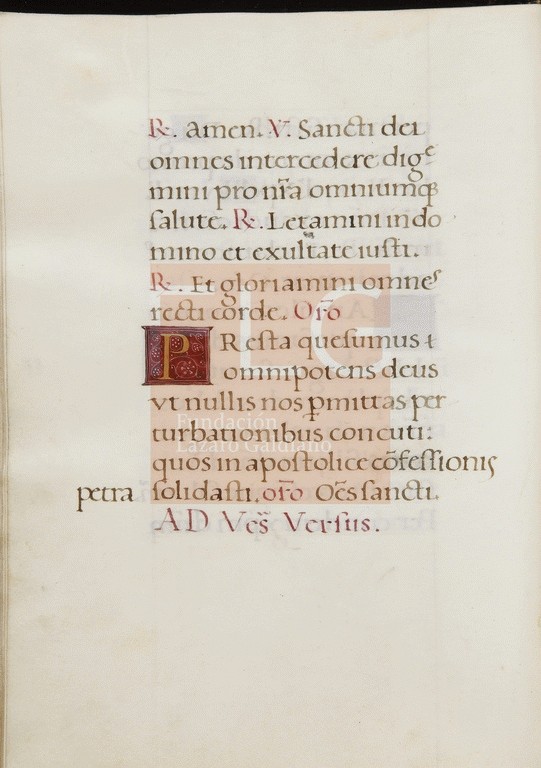 ℟. Amen. ℣. Sancti dei
omnes intercedere dige
mini pro nr̄a omniumqꝫ
salute. ℟. Letamini in do
mino et exultate iusti.
℟. Et gloriamini omnes
recti corde. Or̄o
PResta quesumus
omnipotens deus
vt nullis nos ꝑmittas per
turbationibus concuti:
quos in apostolice cōfessionis
petra solidasti. or̄o Oēs sancti.
AD Ves̄ Versus.
Fundación
Lázaro Galdiano